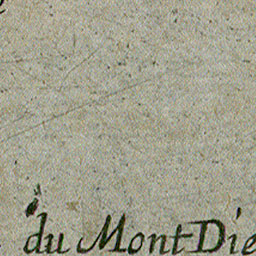 du Mont Die